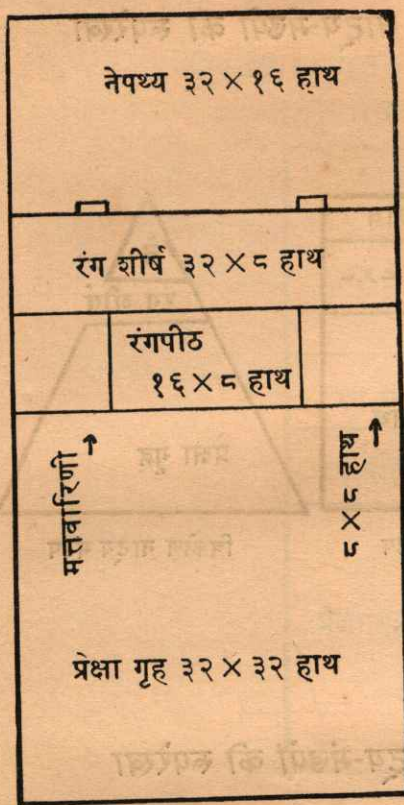 नेपथ्य ३२ × १६ हाथ
रंग शीर्ष ३२ × ८ हाथ
रंगपीठ
१६ × ८ हाथ
मत्तवारिणी →
८ × ८ हाथ →
प्रेक्षा गृह ३२ × ३२ हाथ